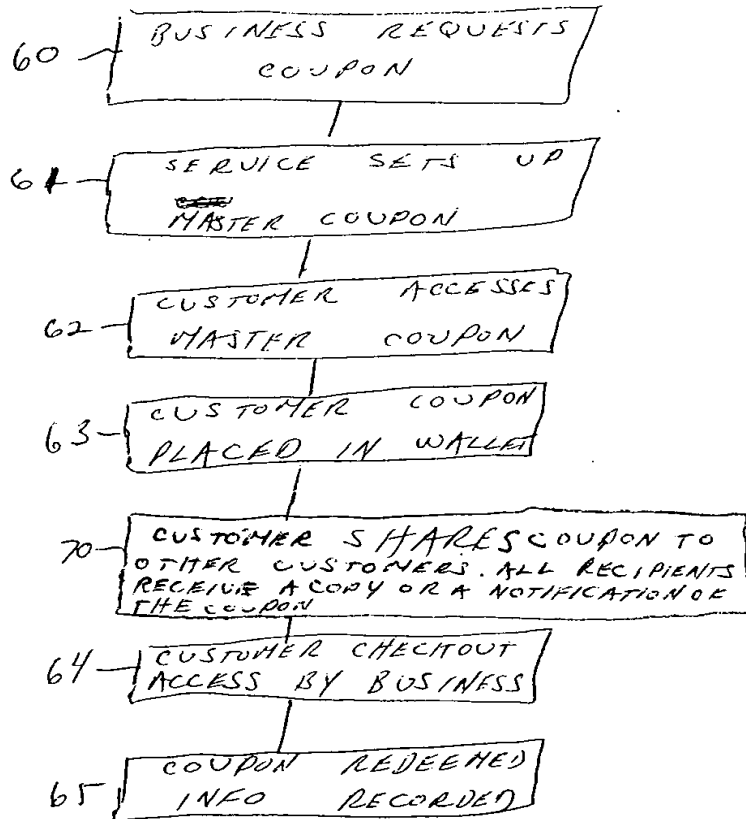 60
BUSINESS REQUESTS
COUPON
61
SERVICE SETS UP
MASTER COUPON
62
CUSTOMER ACCESSES
MASTER COUPON
63
CUSTOMER COUPON
PLACED IN WALLET
70
CUSTOMER SHARES COUPON TO
OTHER CUSTOMERS. ALL RECIPIENTS
RECEIVE A COPY OR A NOTIFICATION OF
THE COUPON
64
CUSTOMER CHECKOUT
ACCESS BY BUSINESS
65
COUPON REDEEMED
INFO RECORDED